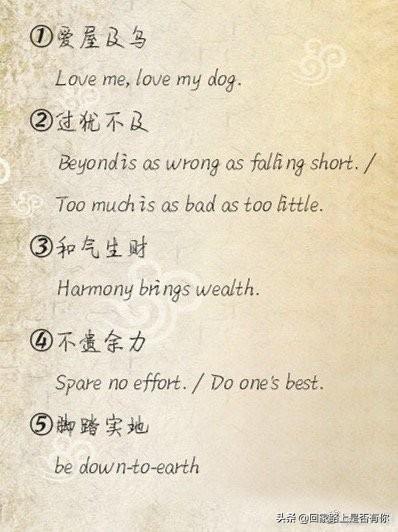 ①爱屋及乌
Love me, love my dog.
②过犹不及
Beyond is as wrong as falling short. /
Too much is as bad as too little.
③和气生财
Harmony brings wealth.
④不遗余力
Spare no effort. / Do one's best.
⑤脚踏实地
be down-to-earth
头条 @回家路上是否有你